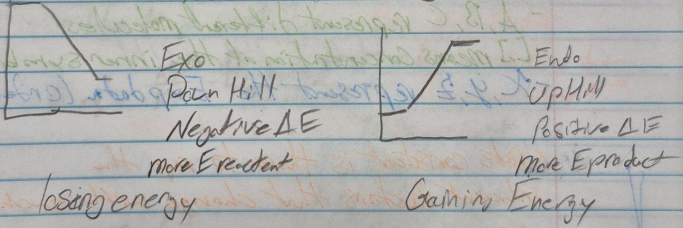 Exo
Down Hill
Negative ΔE
more Ereactent
losing energy
Endo
UpHill
Positive ΔE
more Eproduct
Gaining Energy